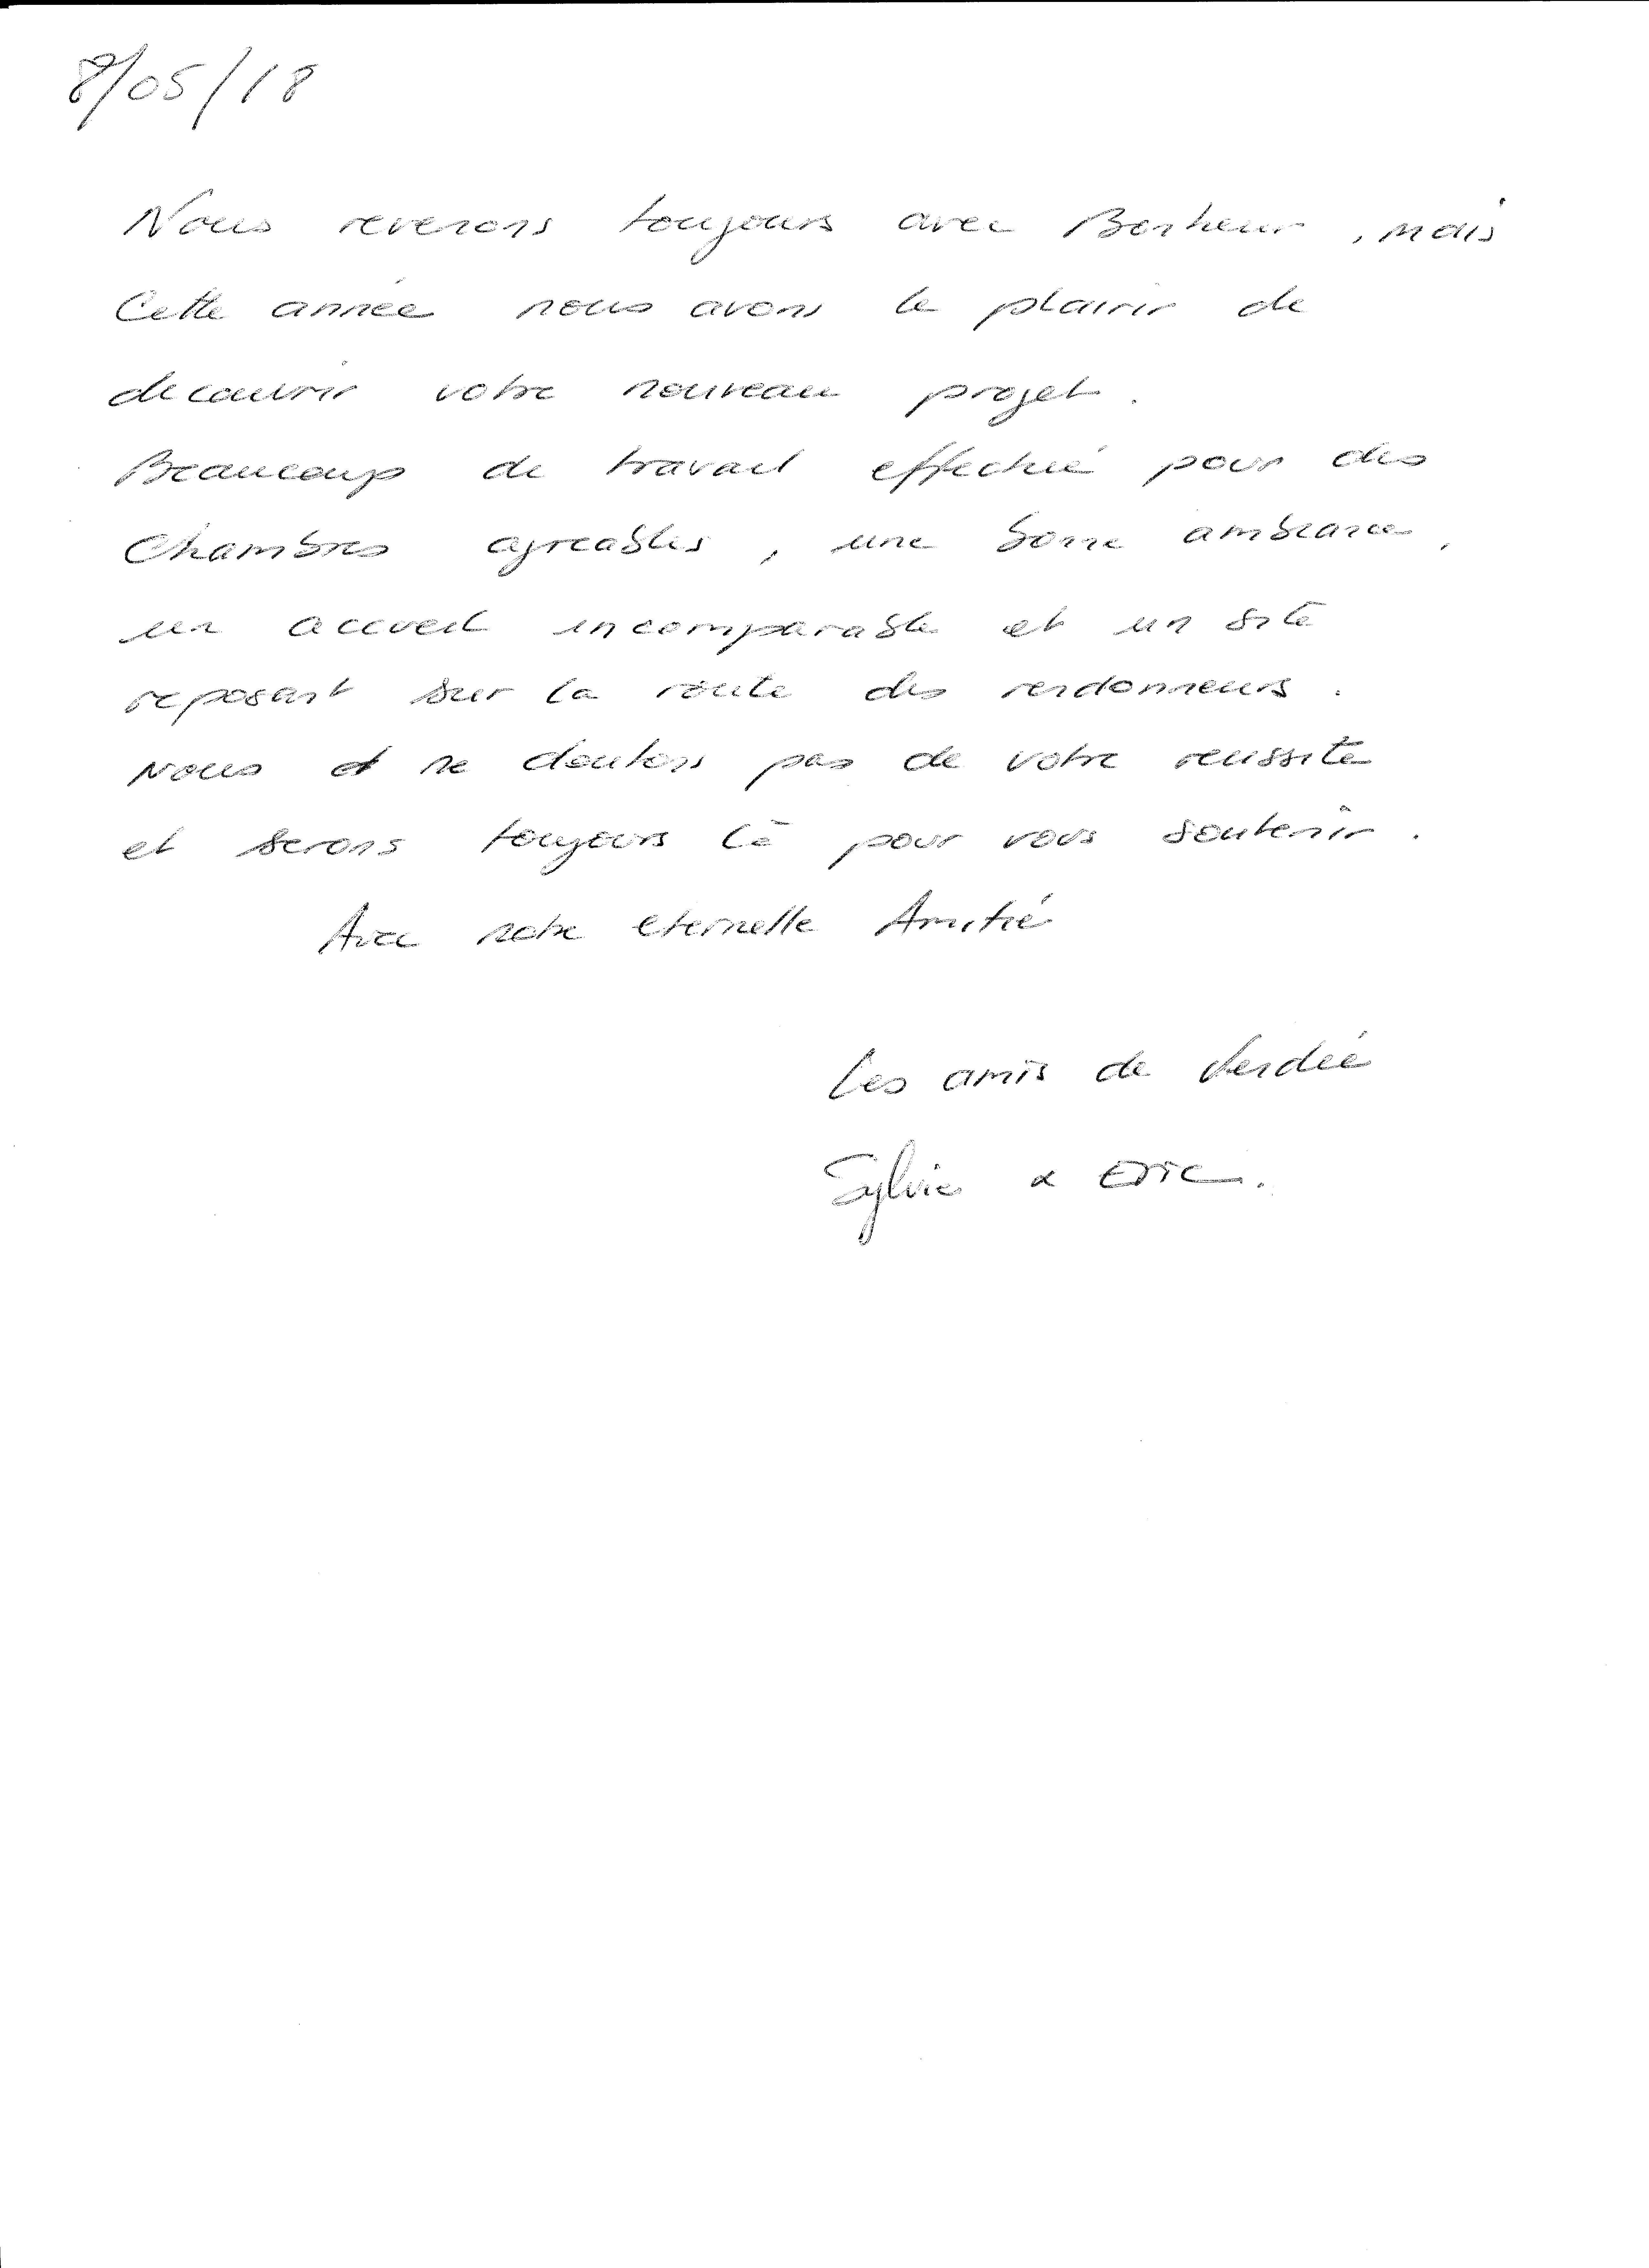 8/05/18
Nous revenons toujours avec Bonheur, mais
Cette année nous avons le plaisir de
decouvrir votre nouveau projet.
Beaucoup de travail effectué pour des
Chambres agreables, une bonne ambiance,
un accueil incomparable et un site
reposant sur la route des rendonneurs.
Nous ne doutons pas de votre reussite
et serons toujours là pour vous soutenir.
Avec notre eternelle Amitié
Les amis de Vendée
Sylvie & Eric.